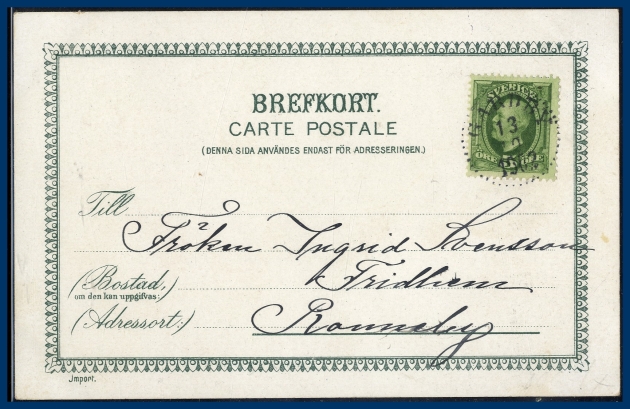 BREFKORT.
CARTE POSTALE
(DENNA SIDA ANVÄNDES ENDAST FÖR ADRESSERINGEN.)
SVERIGE
13
ÖRE
Till
Fröken Ingrid Svensson
(Bostad,
om den kan uppgifvas:)
Fridhem
(Adressort:)
Ronneby
Import.